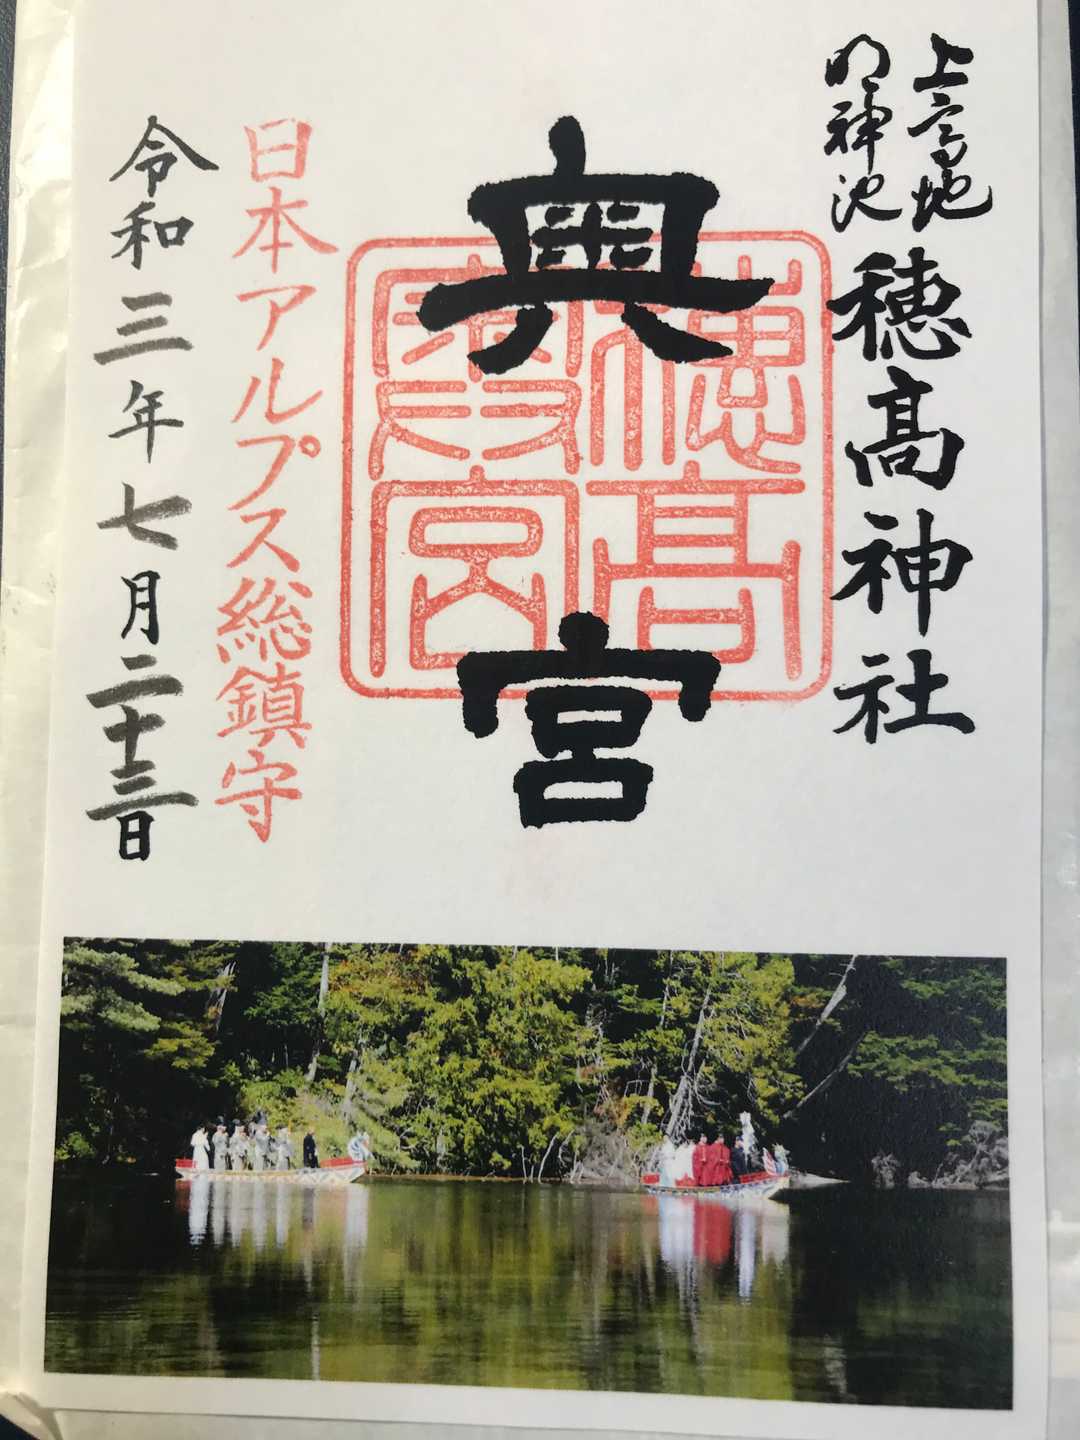 上高地
明神池
穂髙神社
奥宮
日本アルプス総鎮守
令和三年七月二十三日